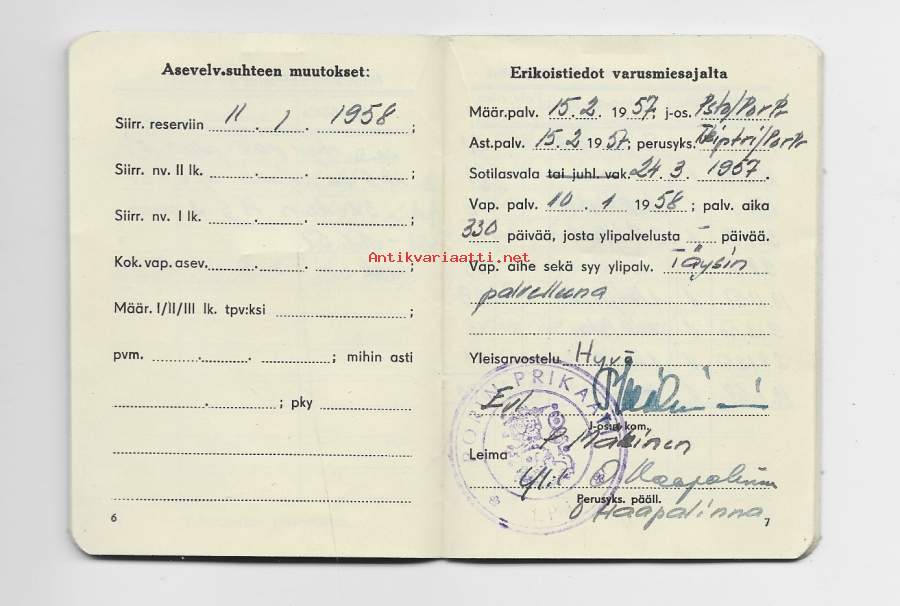 Asevelv.suhteen muutokset:
Siirr. reserviin 11 . 1 . 1958 ;
Siirr. nv. II lk. . . ;
Siirr. nv. I lk. . . ;
Kok. vap. asev. . . ;
Määr. I/II/III lk. tpv:ksi ;
pvm. . . ; mihin asti
. ; pky
6
Erikoistiedot varusmiesajalta
Määr.palv. 15.2. 1957. j-os. Psto/PorPr
Ast.palv. 15.2 1957. perusyks. /PorPr
Sotilasvala tai juhl. vak. 24. 3. 1957.
Vap. palv. 10 . 1 1958 ; palv. aika
330 päivää, josta ylipalvelusta – päivää.
Vap. aihe sekä syy ylipalv. Täysin
palvelleena
Yleisarvostelu Hyvä
Evl
J-osto kom.
P. Mäkinen
Leima
Ylil
Perusyks. pääll.
Haapalinna
7
PORIN PRIKAATI
Antikvariaatti.net